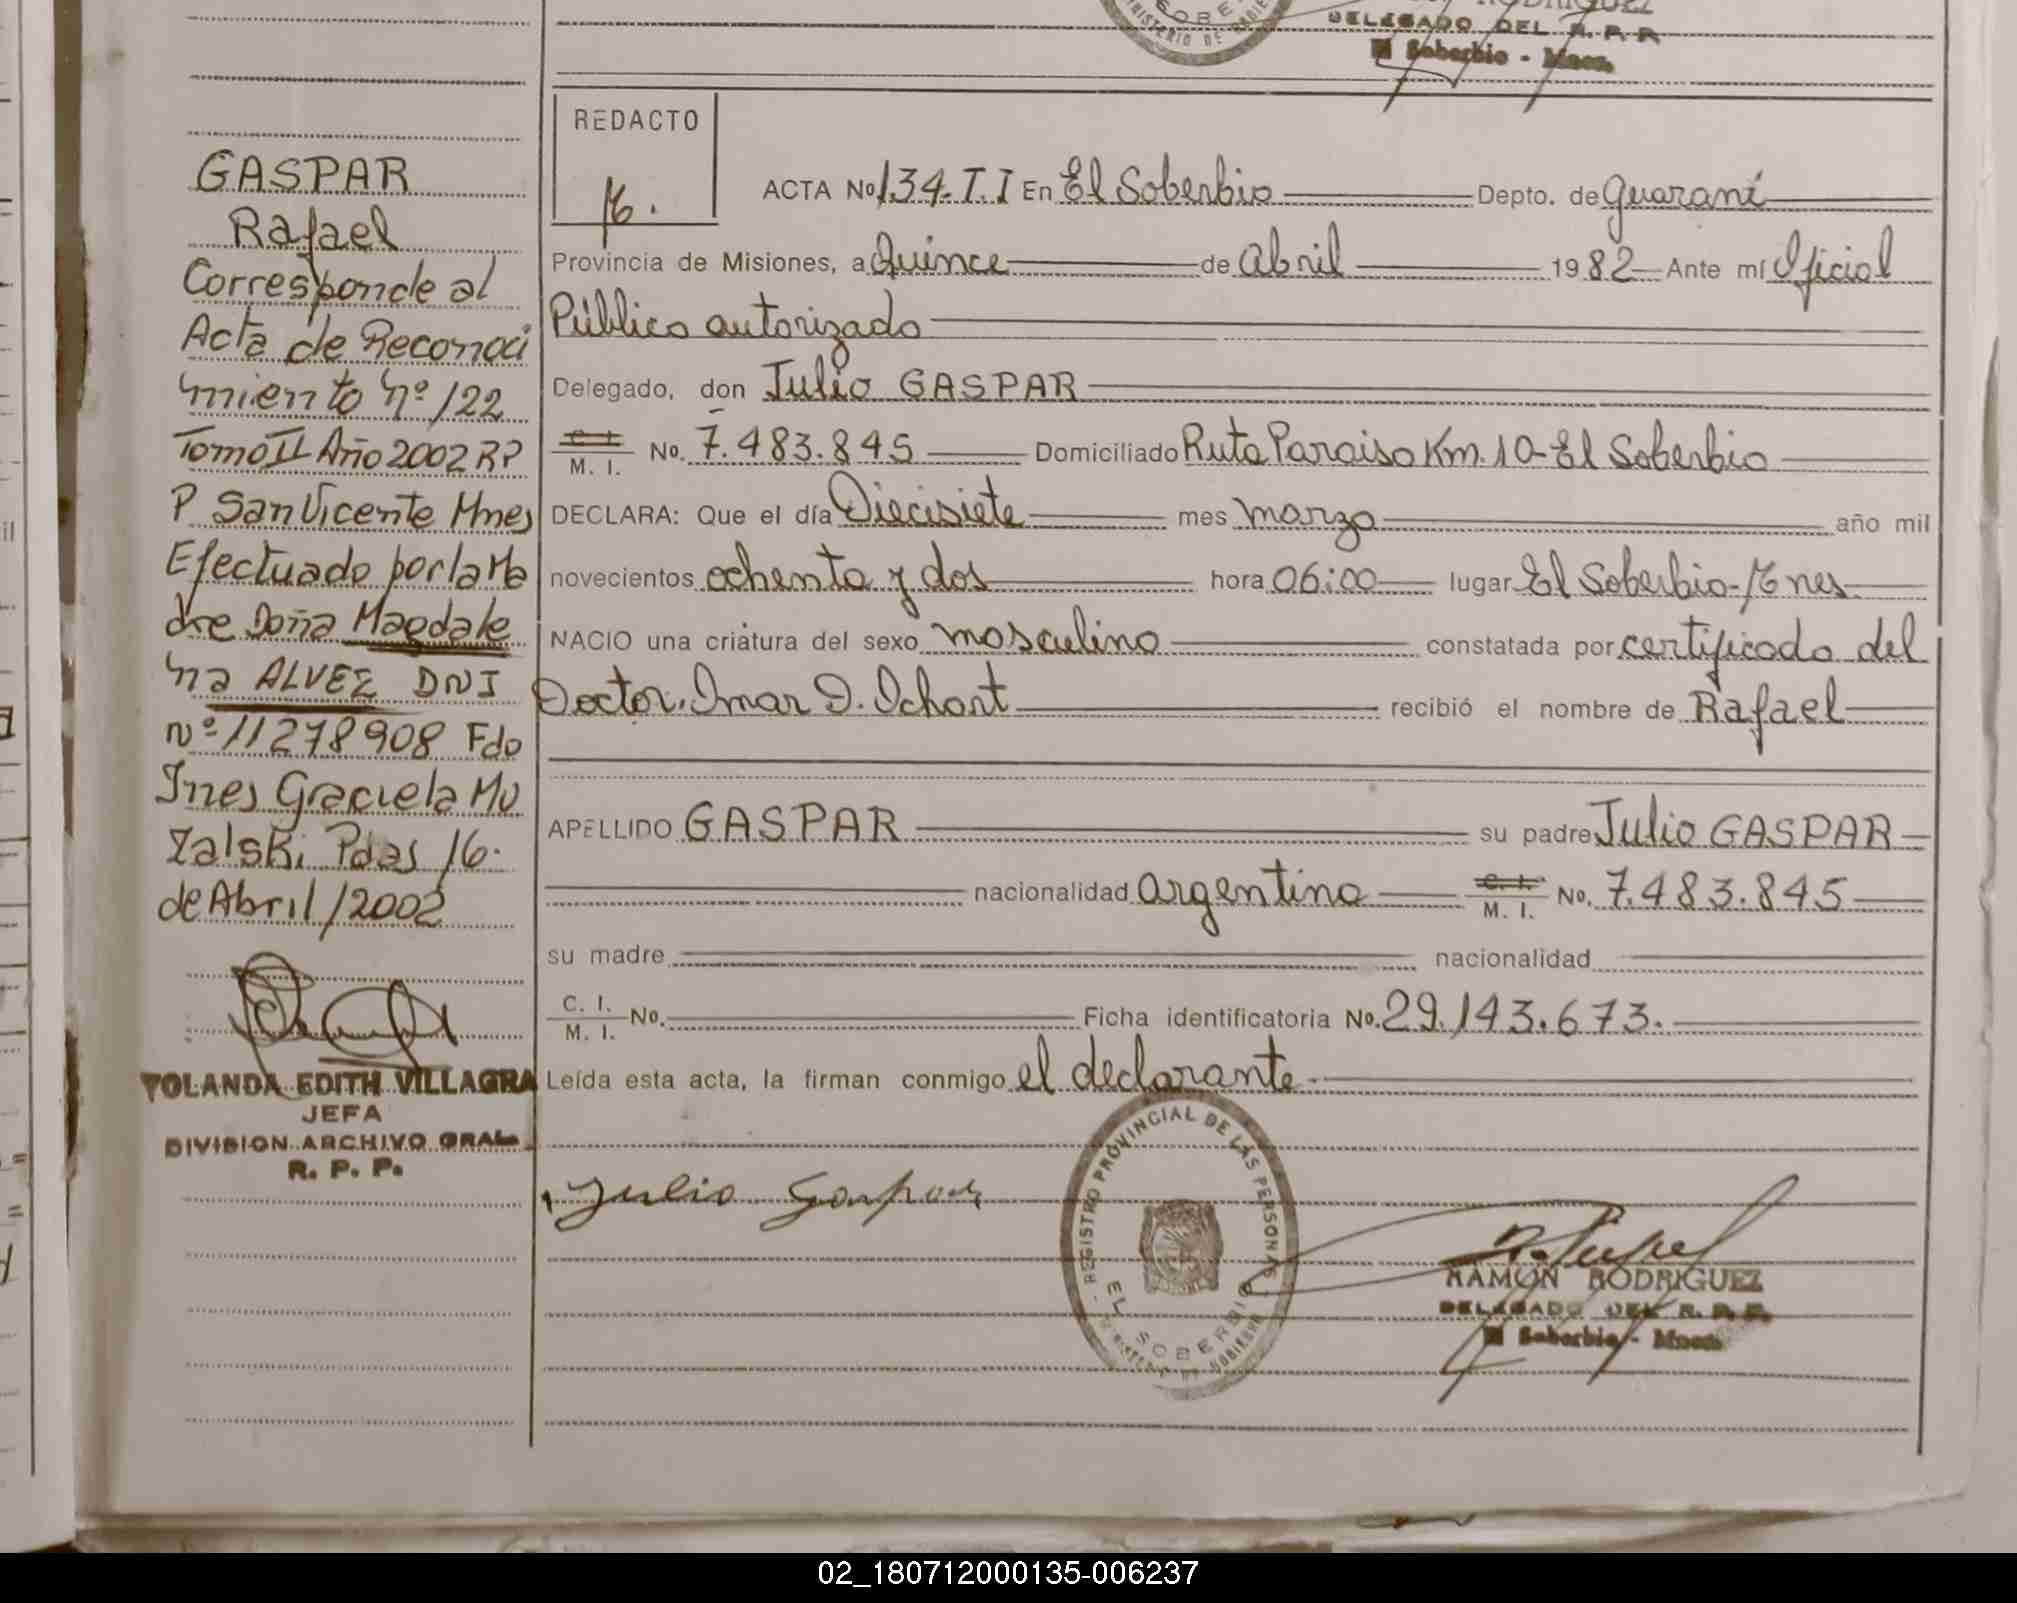 DELEGADO DEL R. P. P.
El Soberbio - Mnes.
REDACTO
GASPAR
Rafael
Corresponde al
Acta de Reconoci
miento nº 122
Tomo II Año 2002 RP
P San Vicente Mnes
Efectuado por la Ma
dre Doña Magdale
na ALVEZ DNI
nº 11278908 Fdo
Ines Graciela Mu
zalski Pdas 16.
de Abril/2002
YOLANDA EDITH VILLAGRA
JEFA
DIVISION ARCHIVO GRAL.
R. P. P.
ACTA No 134-T.I En El Soberbio Depto. de Guaraní
Provincia de Misiones, a Quince de Abril 1982 Ante mí Oficial
Público autorizado
Delegado, don Julio GASPAR
C. I.
M. I. No. 7.483.845 Domiciliado Ruta Paraiso Km. 10-El Soberbio
DECLARA: Que el día Diecisiete mes marzo año mil
novecientos ochenta y dos hora 06:00 lugar El Soberbio-Mnes.
NACIO una criatura del sexo masculino constatada por certificado del
Doctor. Omar D. Ichart recibió el nombre de Rafael
APELLIDO GASPAR su padre Julio GASPAR
nacionalidad argentina C. I.
M. I. No. 7.483.845
su madre nacionalidad
C. I.
M. I. No. Ficha identificatoria No. 29.143.673.
Leída esta acta, la firman conmigo el declarante.
Julio Gaspar
REGISTRO PROVINCIAL DE LAS PERSONAS
EL SOBERBIO
MINISTERIO DE GOBIERNO
RAMON RODRIGUEZ
DELEGADO DEL R. P. P.
El Soberbio - Mnes.
02_180712000135-006237